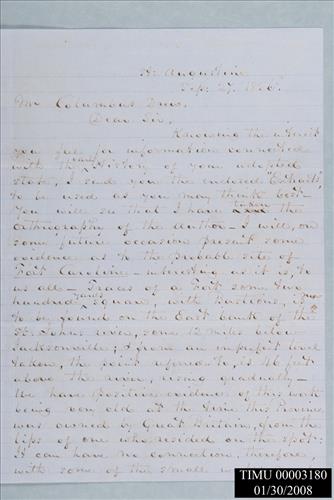 St. Augustine
Sep: 27. 1856.
Mr Columbus Drew.
Dear Sir.
Knowing the interest
you feel for information connected
with the early History of your adopted
state, I send you the enclosed "Extracts"
to be used as you may think best.
You will see that I have the
orthography of the Author - I will, on
some future occasion present some
evidence as to the probable site of
Fort Caroline - interesting as it is, to
us all - Traces of a Fort some two
hundred yards square, with Bastions,
to be found on the East bank of the
St. Johns river, some 12 miles below
Jacksonville; from an imperfect level
taken, the point referred to, is 46 feet
above the river, rising gradually -
We have positive evidence of this work
being very old at the time this Province
was owned by Great Britain, from the
lips of one who resided on the spot:
It can have no connection, therefore,
with some of the small
TIMU 00003180
01/30/2008